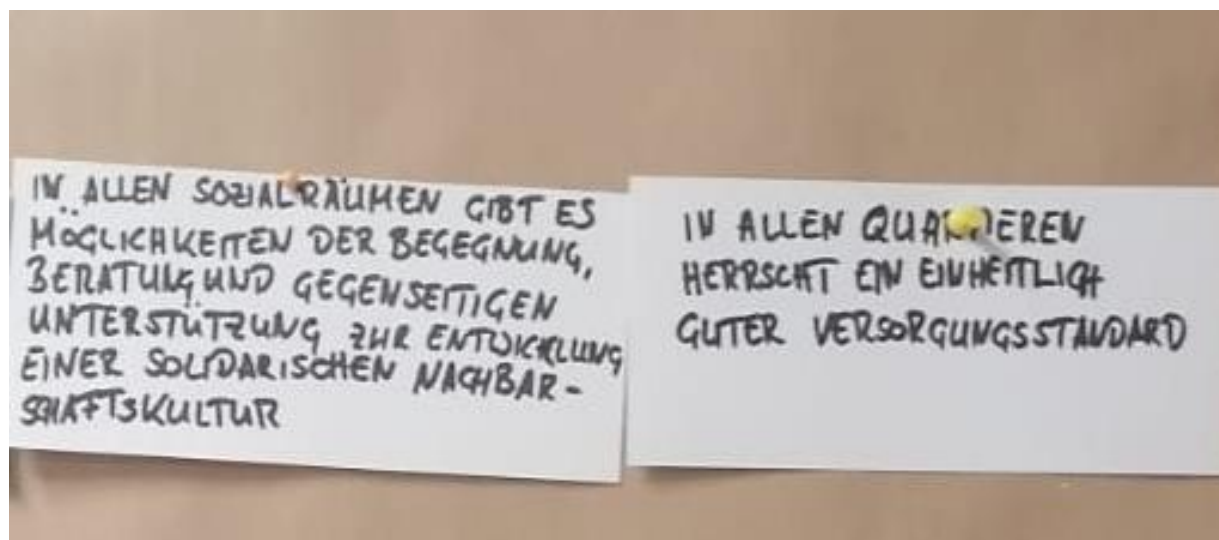 IN ALLEN SOZIALRÄUMEN GIBT ES
MÖGLICHKEITEN DER BEGEGNUNG,
BERATUNG UND GEGENSEITIGEN
UNTERSTÜTZUNG ZUR ENTWICKLUNG
EINER SOLIDARISCHEN NACHBAR-
SCHAFTSKULTUR
IN ALLEN QUARTIEREN
HERRSCHT EIN EINHEITLICH
GUTER VERSORGUNGSSTANDARD